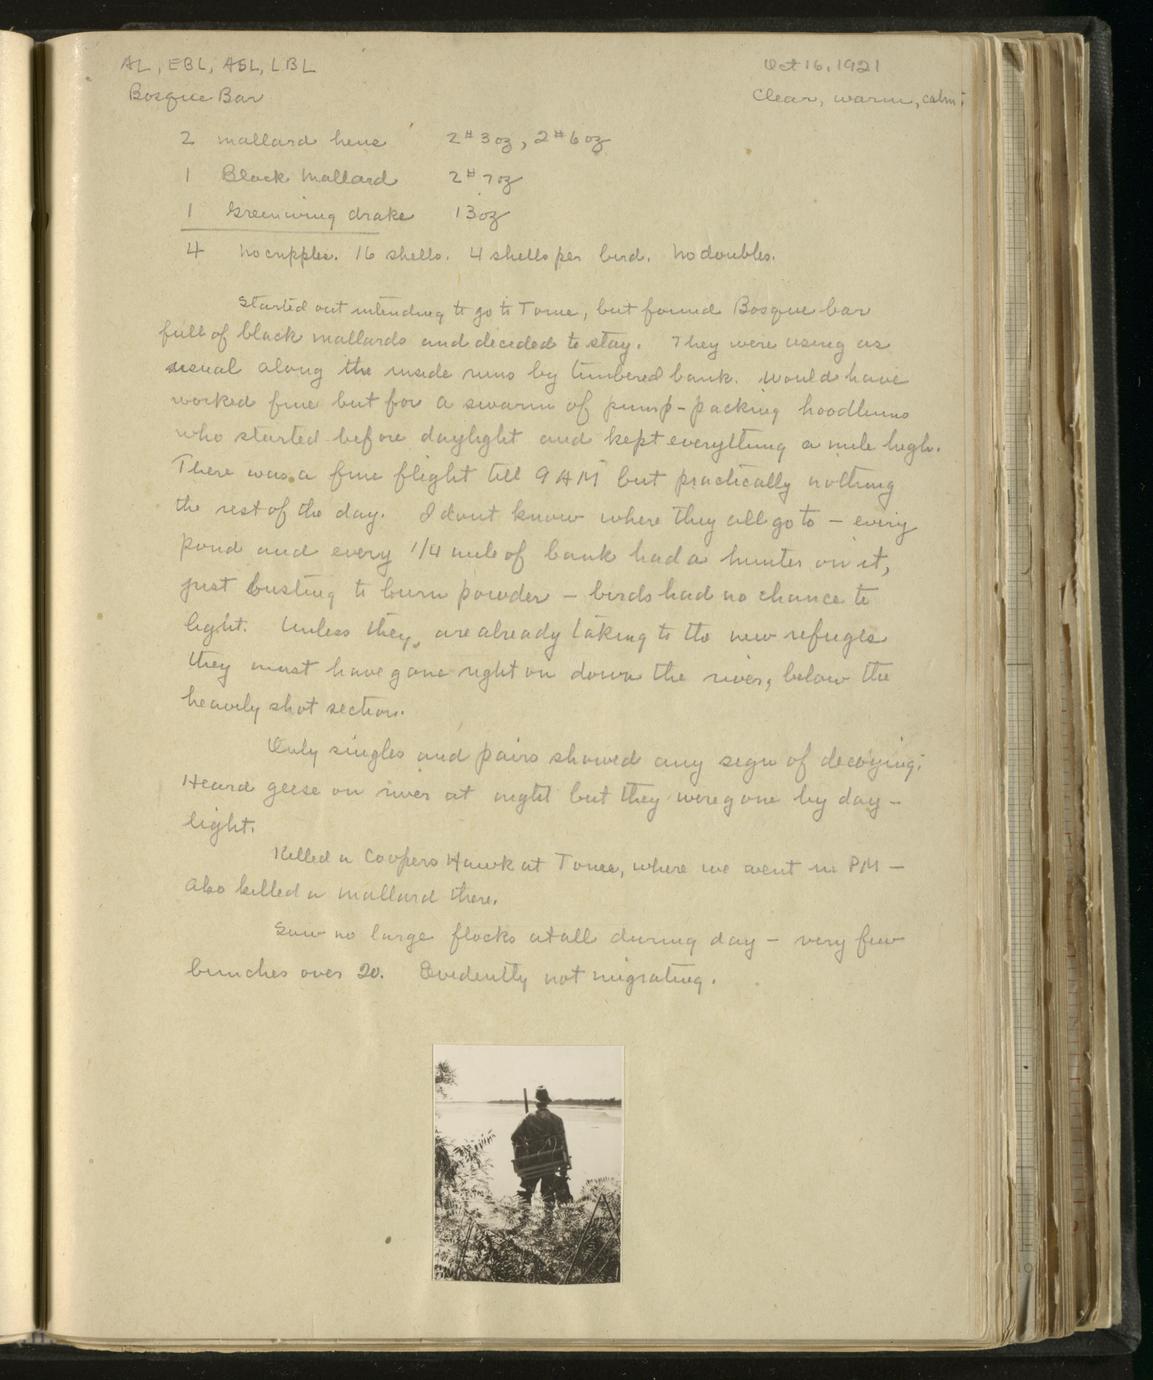 AL, EBL, ASL, LBL
Oct 16, 1921
Bosque Bar
Clear, warm, calm.
2 mallard hens 2# 3oz, 2# 6oz
1 Black Mallard 2# 7oz
1 Greenwing drake 13oz
4 No cripples. 16 shells. 4 shells per bird. No doubles.
Started out intending to go to Tome, but found Bosque bar
full of black mallards and decided to stay. They were using as
usual along the inside runs by timbered bank. Would have
worked fine but for a swarm of pump-packing hoodlums
who started before daylight and kept everything a mile high.
There was a fine flight till 9 AM but practically nothing
the rest of the day. I dont know where they all go to – every
pond and every 1/4 mile of bank had a hunter on it,
just busting to burn powder – birds had no chance to
light. Unless they are already taking to the new refuges
they must have gone right on down the river, below the
heavily shot section.
Only singles and pairs showed any sign of decoying.
Heard geese on river at night but they were gone by day-
light.
Killed a Coopers Hawk at Tome, where we went in PM –
also killed a mallard there.
Saw no large flocks at all during day – very few
bunches over 20. Evidently not migrating.